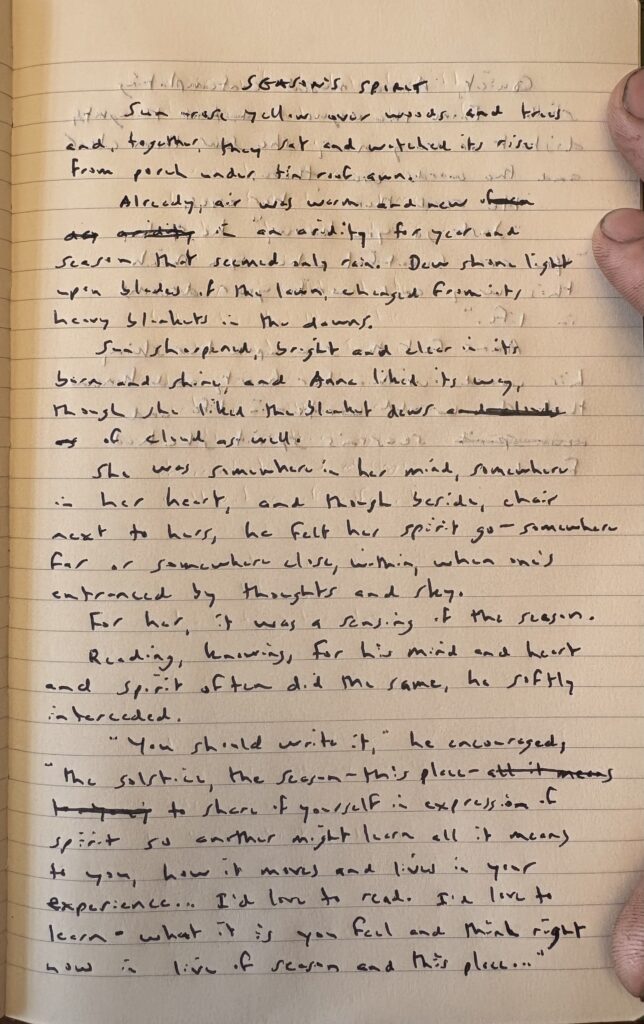 SEASON'S SPIRIT
Sun rose yellow over woods and trees
and, together, they sat and watched its rise
from porch under tin roof awn.
Already, air was warm and new
it an aridity for year and
season that seemed only rain. Dew shone light
upon blades of the lawn, changed from its
heavy blankets in the dawns.
Sun sharpened, bright and clear in its
born and shine, and Anne liked its way,
though she liked the blanket dews and clouds
as of cloud as well.
She was somewhere in her mind, somewhere
in her heart, and though beside, chair
next to hers, he felt her spirit go - somewhere
far or somewhere close, within, when one's
entranced by thoughts and sky.
For her, it was a sensing of the season.
Reading, knowing, for his mind and heart
and spirit often did the same, he softly
interceded.
"You should write it," he encouraged,
"the solstice, the season - this place - all it means
to share of yourself in expression of
spirit so another might learn all it means
to you, how it moves and lives in your
experience... I'd love to read. I'd love to
learn - what it is you feel and think right
now in live of season and this place..."